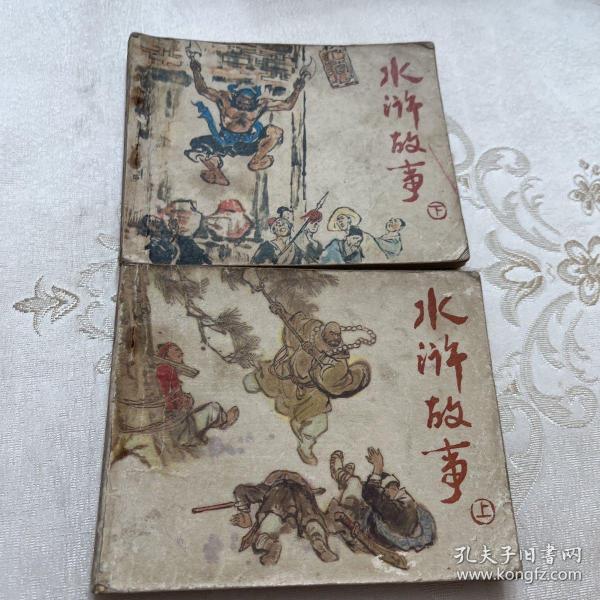 水浒故事
下
水浒故事
上
孔夫子旧书网
www.kongfz.com